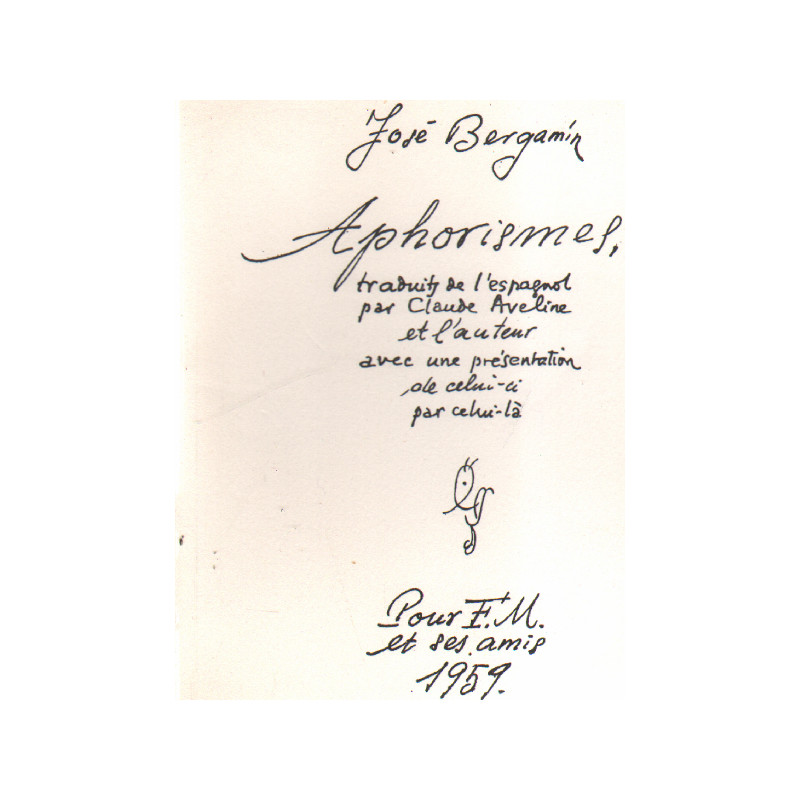 José Bergamín
Aphorismes,
traduits de l'espagnol
par Claude Aveline
et l'auteur
avec une présentation
de celui-ci
par celui-là
Pour F.M.
et ses amis
1959.